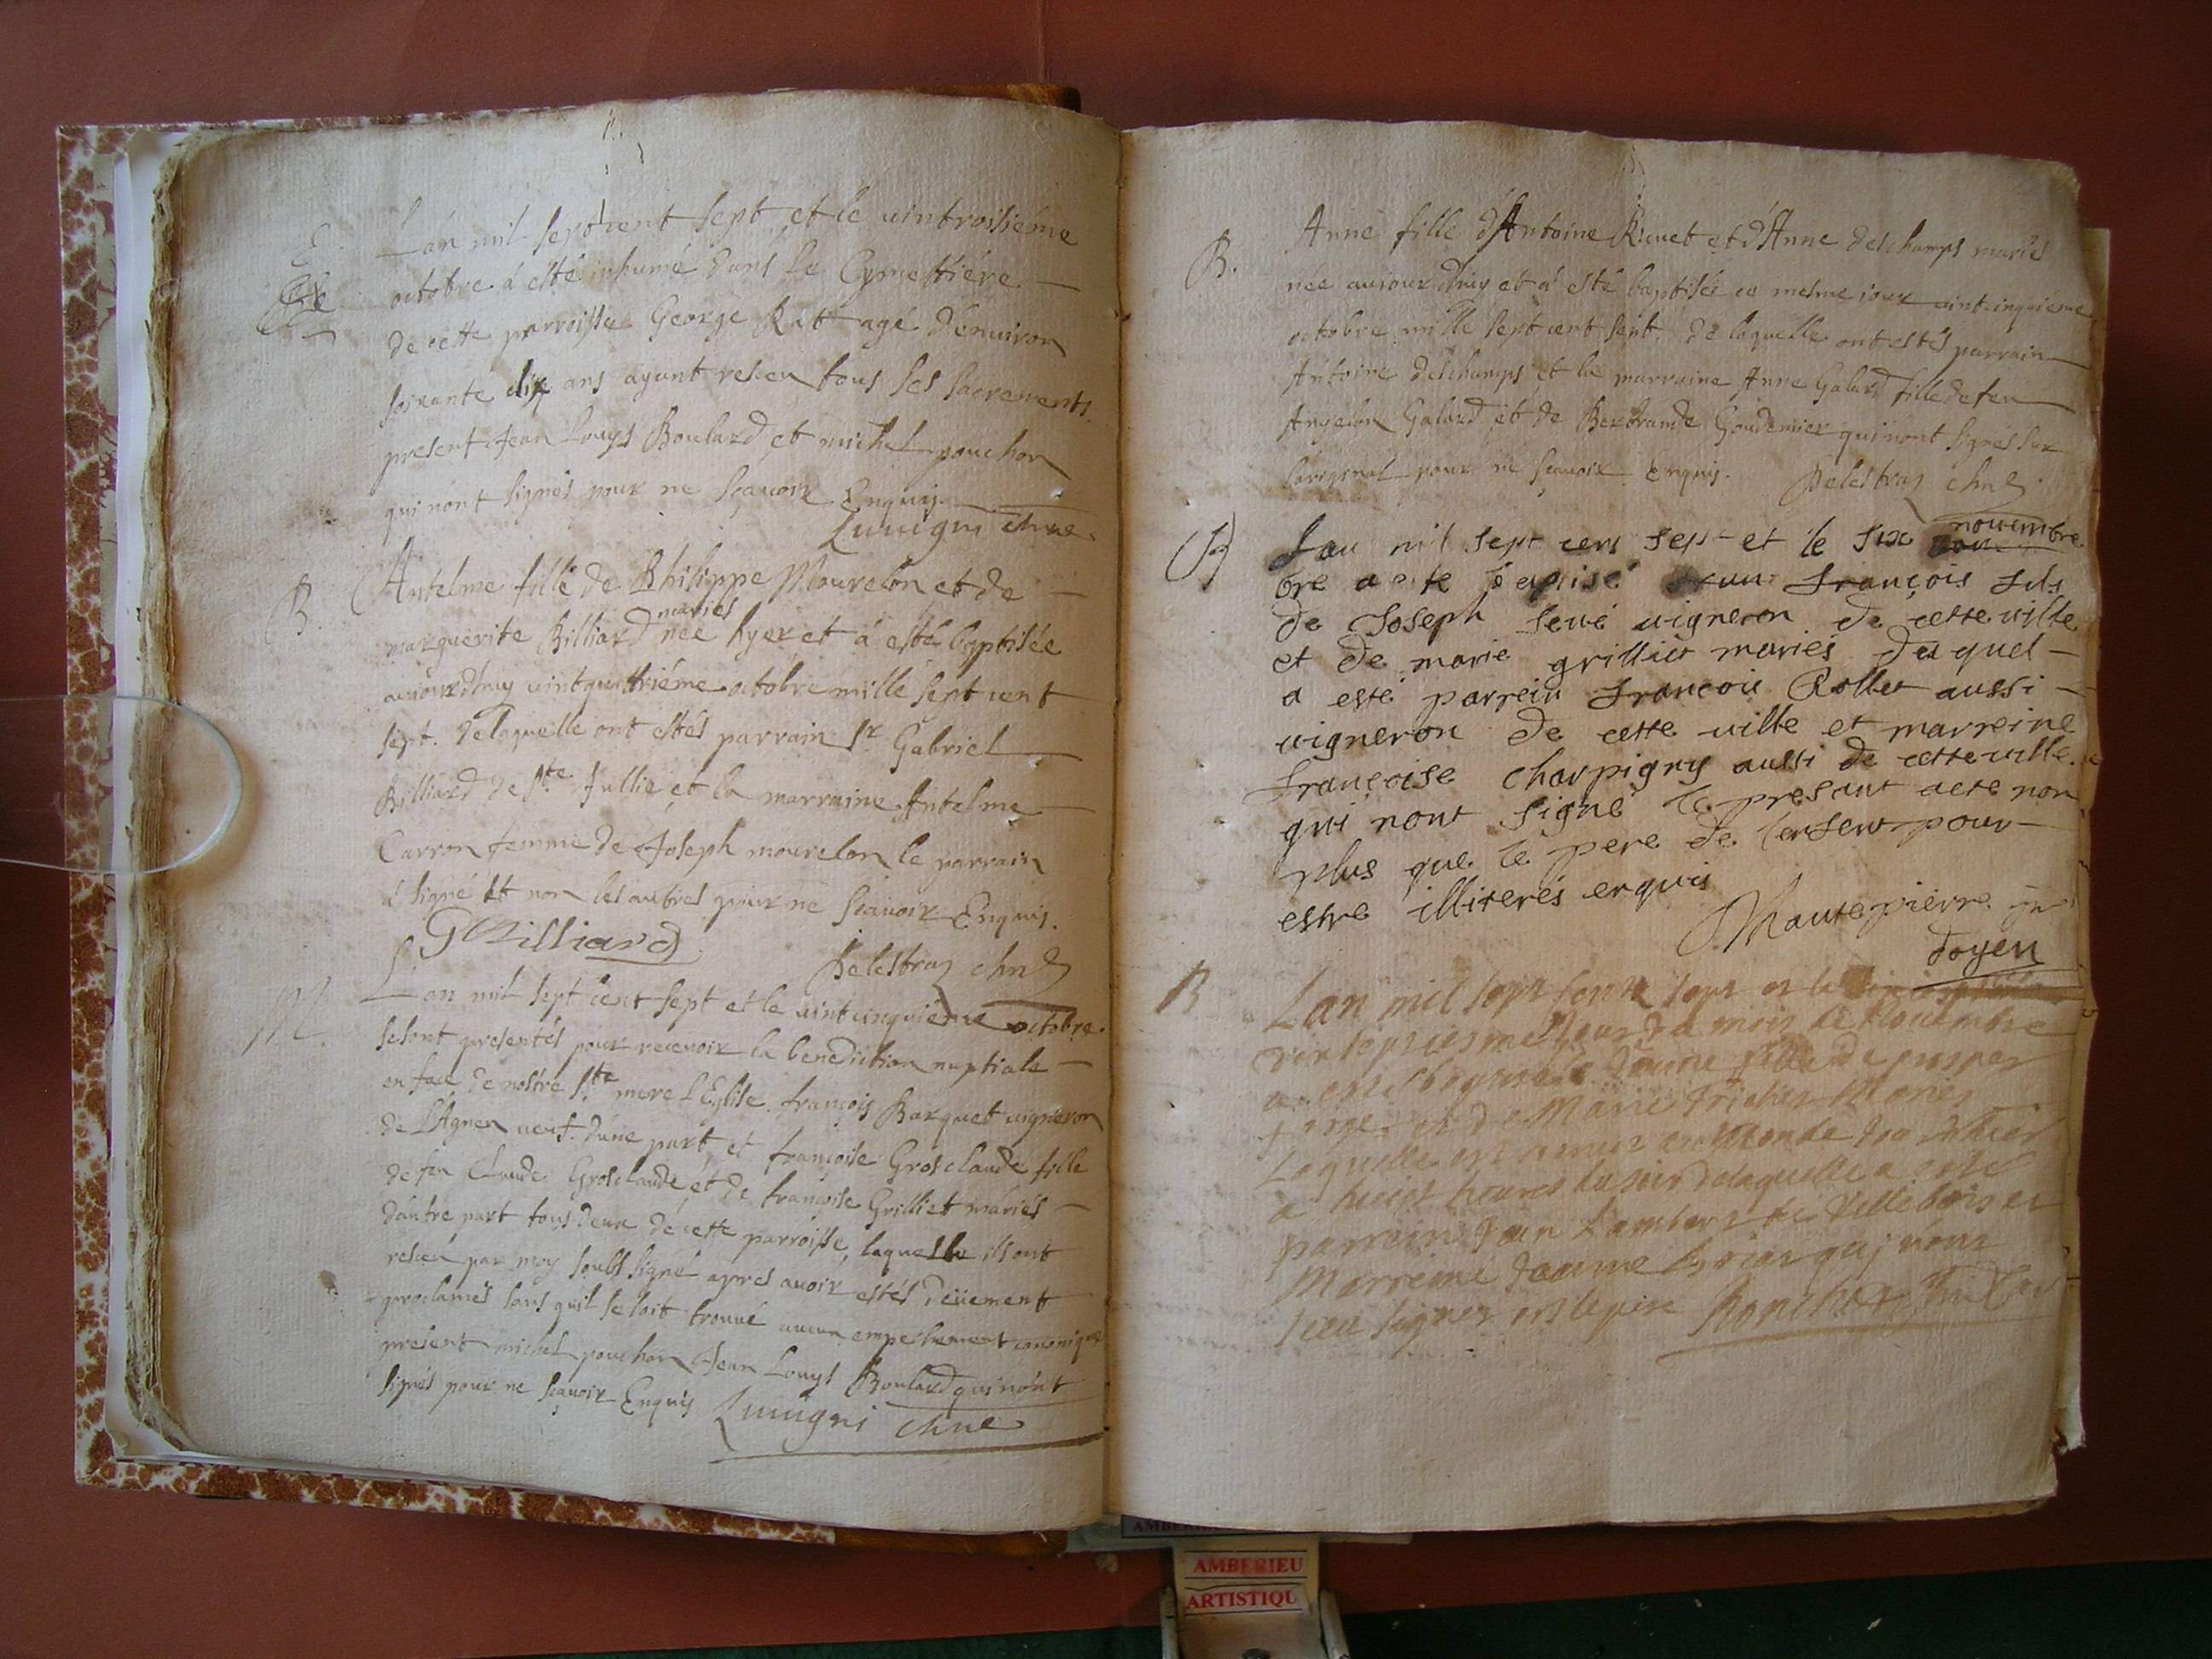 E.
Lan mil sept cent sept et le vintroisiéme
octobre á esté inhumé dans le Cymettiére —
de cette parroisse George Rat agé d'environ
soixante dix ans ayant resceu tous ses sacrements
present Jean Louys Boulard et michel pouchon
qui n'ont signés pour ne sçavoir Enquis.
Luuigni chne.
B.
Antelme fille de Philippe Mourelon et de —
mariés
marguerite Billiard née hyer et á esté baptisée
aujourdhuy vintquattriéme octobre mille sept cent
sept. de laquelle ont estés parrain Sr. Gabriel —
Billiard de Ste. Jullie et la marraine Antelme —
Carron femme de Joseph mourelon le parrain
á signé et non les autres pour ne sçavoir Enquis.
GBilliard
Pelestraz chne
M.
L'an mil sept cent sept et le vintcinquiéme octobre.
se sont presentés pour recevoir la benediction nuptiale —
en face de nostre Ste mere l'Eglise françois Barquet vigneron
de L'Agnen veuf. d'une part et françoise Grosclaude fille
de feu Claude Grosclaude et de françoise Grilliet mariés —
d'autre part tous deux de cette parroisse, laquelle ils ont
resceu par moy soubsigné apres avoir estés deüement
proclamés sans quil se soit trouvé aucun empechement canonique
present michel pouchon Jean Louys Boulard qui n'ont
signés pour ne sçavoir Enquis Luuigni chne
B.
Anne fille d'Antoine Riuuet et d'Anne deschamps mariés
née aujourdhuy et á esté baptisée ce mesme jour vintcinquieme
octobre mille sept cent sept. de laquelle ont estés parrain —
Antoine deschamps et la marraine Anne Galard fille de feu —
Angelon Galard et de Bertrande Goudemier qui n'ont signés sur
l'original pour ne sçavoir Enquis. Pelestraz chne.
B
Lan mil sept cens sept et le six novembre
bre a este baptisé Jean françois fils
de Joseph sevé vigneron de cette ville
et de marie grilliet mariés duquel —
a esté parrein francois Rollet aussi —
vigneron de cette ville et marreine
françoise charpigny aussi de cette ville
qui n'ont signé le presant acte non
plus que le pere de lenfent pour —
estre illiterés enquis
Mantepierre
doyen
B
Lan mil sept sent sept et le
dix septiesme Jour du mois de Novembre
a este baptisée Jeanne fille de
et de Marie mariés
Laquelle est au monde hier
a huict heures du soir delaquelle a esté
parrein Jean Lambert de Villebois et
Marreine Jeanne qui n'ont
sceu signer et le pere
AMBERIEU
ARTISTIQU